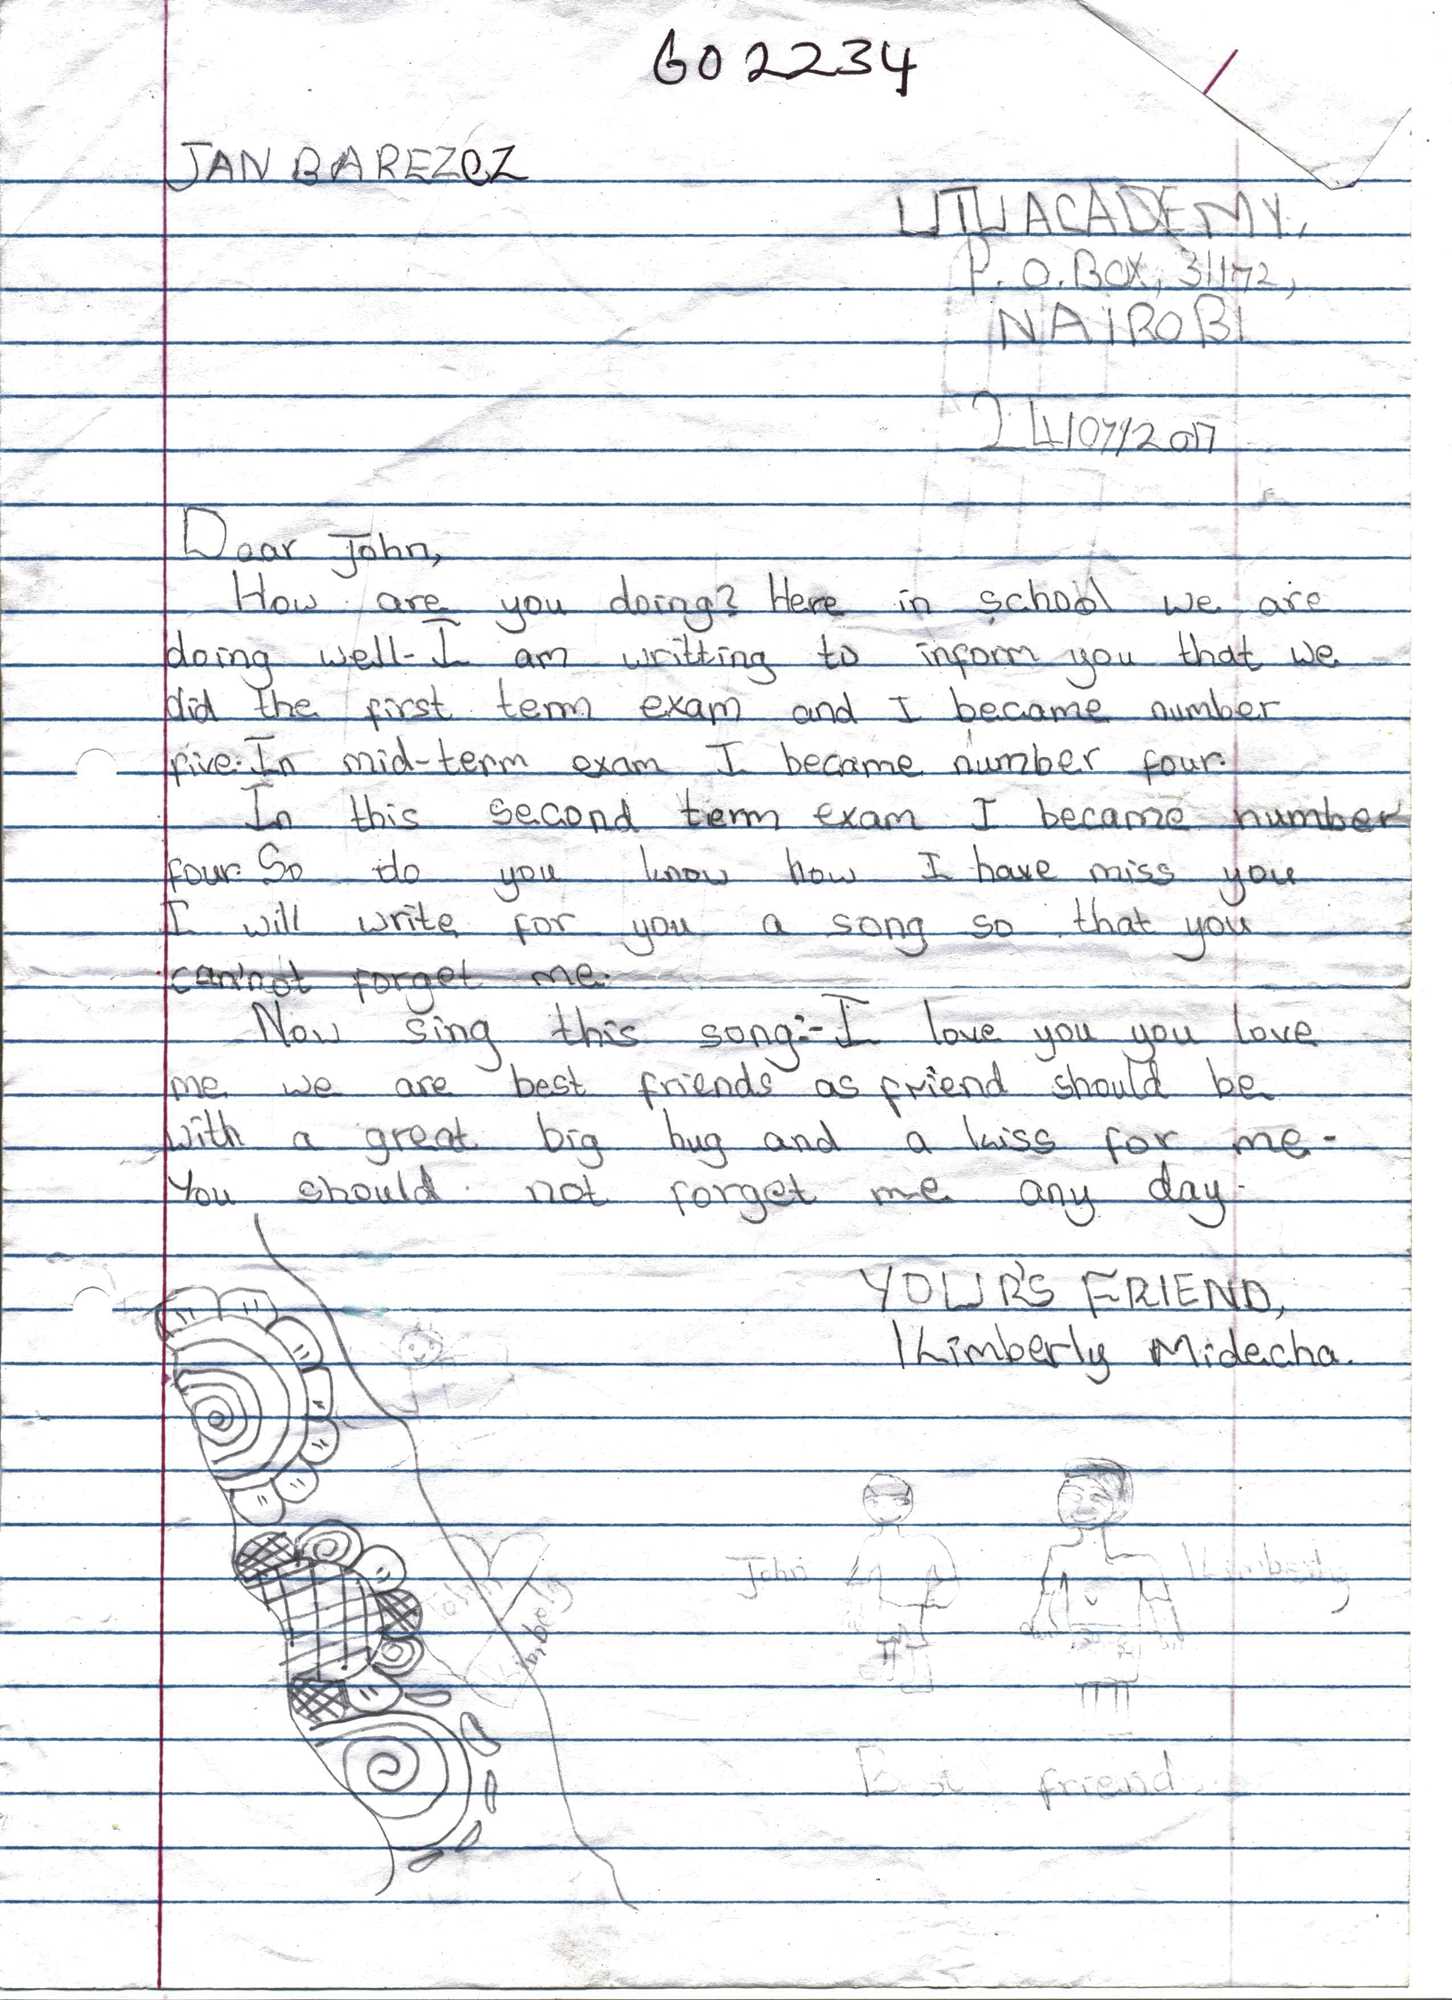 GO 2234
JAN BAREZOZ
UTUACADEMY,
P.O.BOX, 31172,
NAIROBI
24/07/2017
Daar John,
How are you doing? Here in school we are
doing well-I am writting to inform you that we
did the first term exam and I became number
five. In mid-term exam I became number four.
In this second term exam I became number
four. So do you know how I have miss you
I will write for you a song so that you
can'not forget me.
Now sing this song:-I love you you love
me we are best friends as friend should be
with a great big hug and a kiss for me-
You should not forget me any day.
YOUR'S FRIEND,
Kimberly Midecha.
John Kimberly
Kimberly
friend